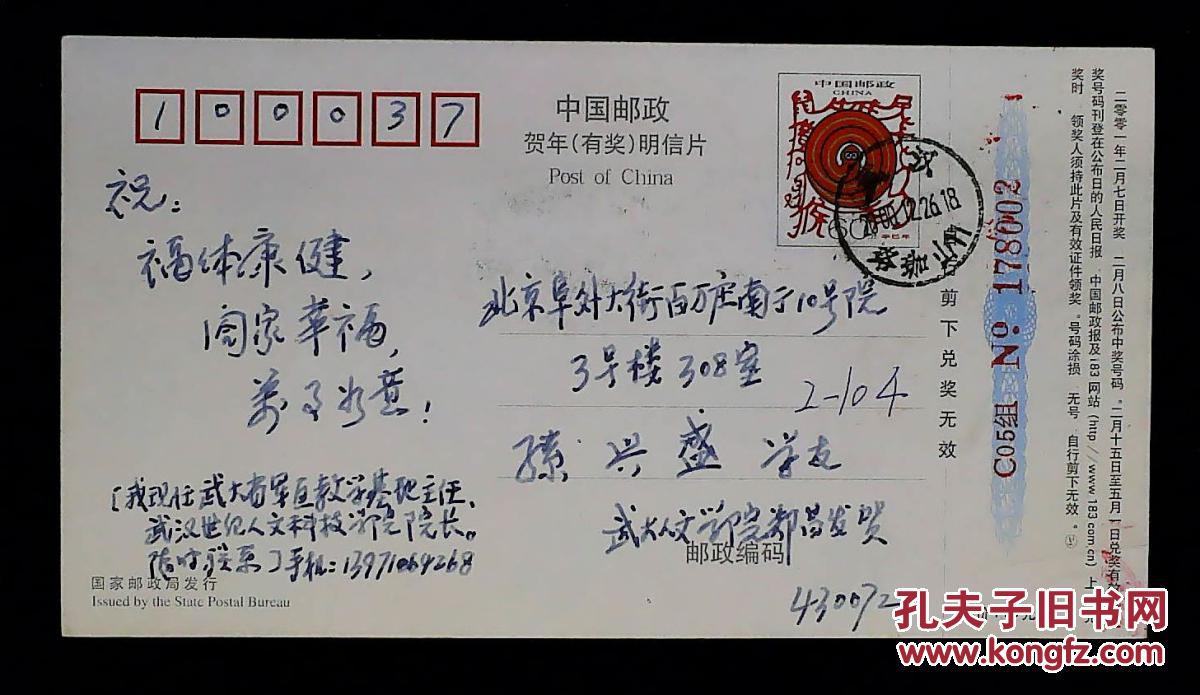 1 0 0 0 3 7
中国邮政
贺年(有奖)明信片
Post of China
中国邮政
CHINA
60
武汉
2000.12.26.18
珞珈山
祝:
福体康健,
阖家幸福,
万事如意!
北京阜外大街百万庄南于10号院
3号楼308室
2-104
孙兴盛 学友
武大人文学院郑昌发贺
邮政编码
430072
(我现任武大省军区教学基地主任、
武汉世纪人文科技学院院长。
随时联系)手机:13971069268
国家邮政局发行
Issued by the State Postal Bureau
剪下兑奖无效
C05组 No 178002
二零零一年二月七日开奖 二月八日公布中奖号码。二月十五日至五月 日兑奖有效
奖号码刊登在公布日的人民日报 中国邮政报及183网站(http://www.183.com.cn)上
奖时 领奖人须持此片及有效证件领奖。号码涂损 无号 自行剪下无效。
孔夫子旧书网
www.kongfz.com